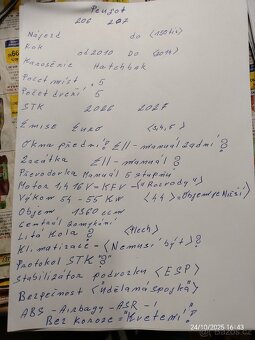 Peugot
206 207
Nájezd do <150tis>
Rok od 2010 do 2014
Karosérie Hatchbak
Počet míst . 5
Počet dveří . 5
STK 2026 2027
Emise Euro <3,4,5>
Okna přední? Ell-manuál zadní?
Zrcátka Ell-manuál?
Převodovka Manuál 5 stupňů
Motor 1,4 16V = KFV = <"Rozvody">
Výkon 54-55 KW <44> =
Objem 1360 ccm
Centrál zamykání
Litá Kola? <Plech>
Klimatizace = <Nemusí být>?
Protokol STK "?"
Stabilizátor podvozku <ESP>
Bezpečnost <Udělaná spojka>
ABS - Airbagy - ASR - !
Bez koroze = "Kvetení"!
24/10/2025 16:43